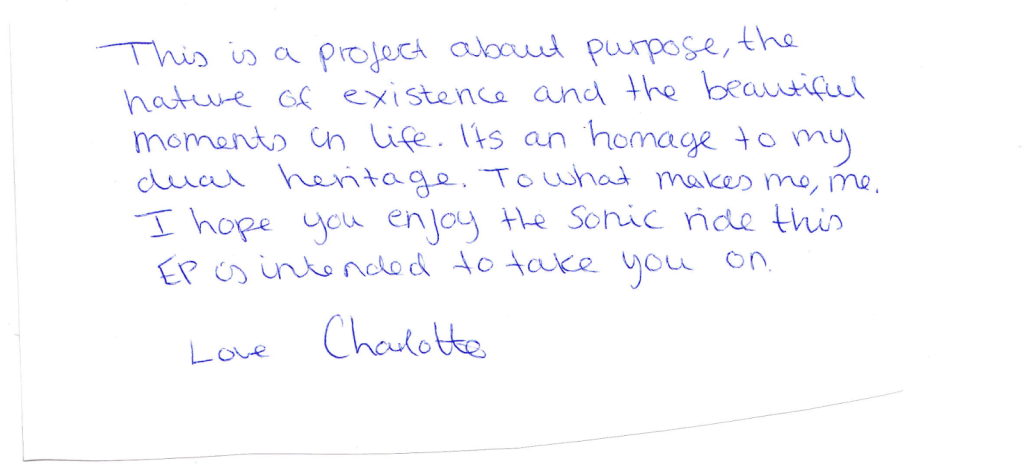 This is a project about purpose, the
nature of existence and the beautiful
moments in life. It's an homage to my
dual heritage. To what makes me, me.
I hope you enjoy the sonic ride this
EP is intended to take you on.
Love Charlotte